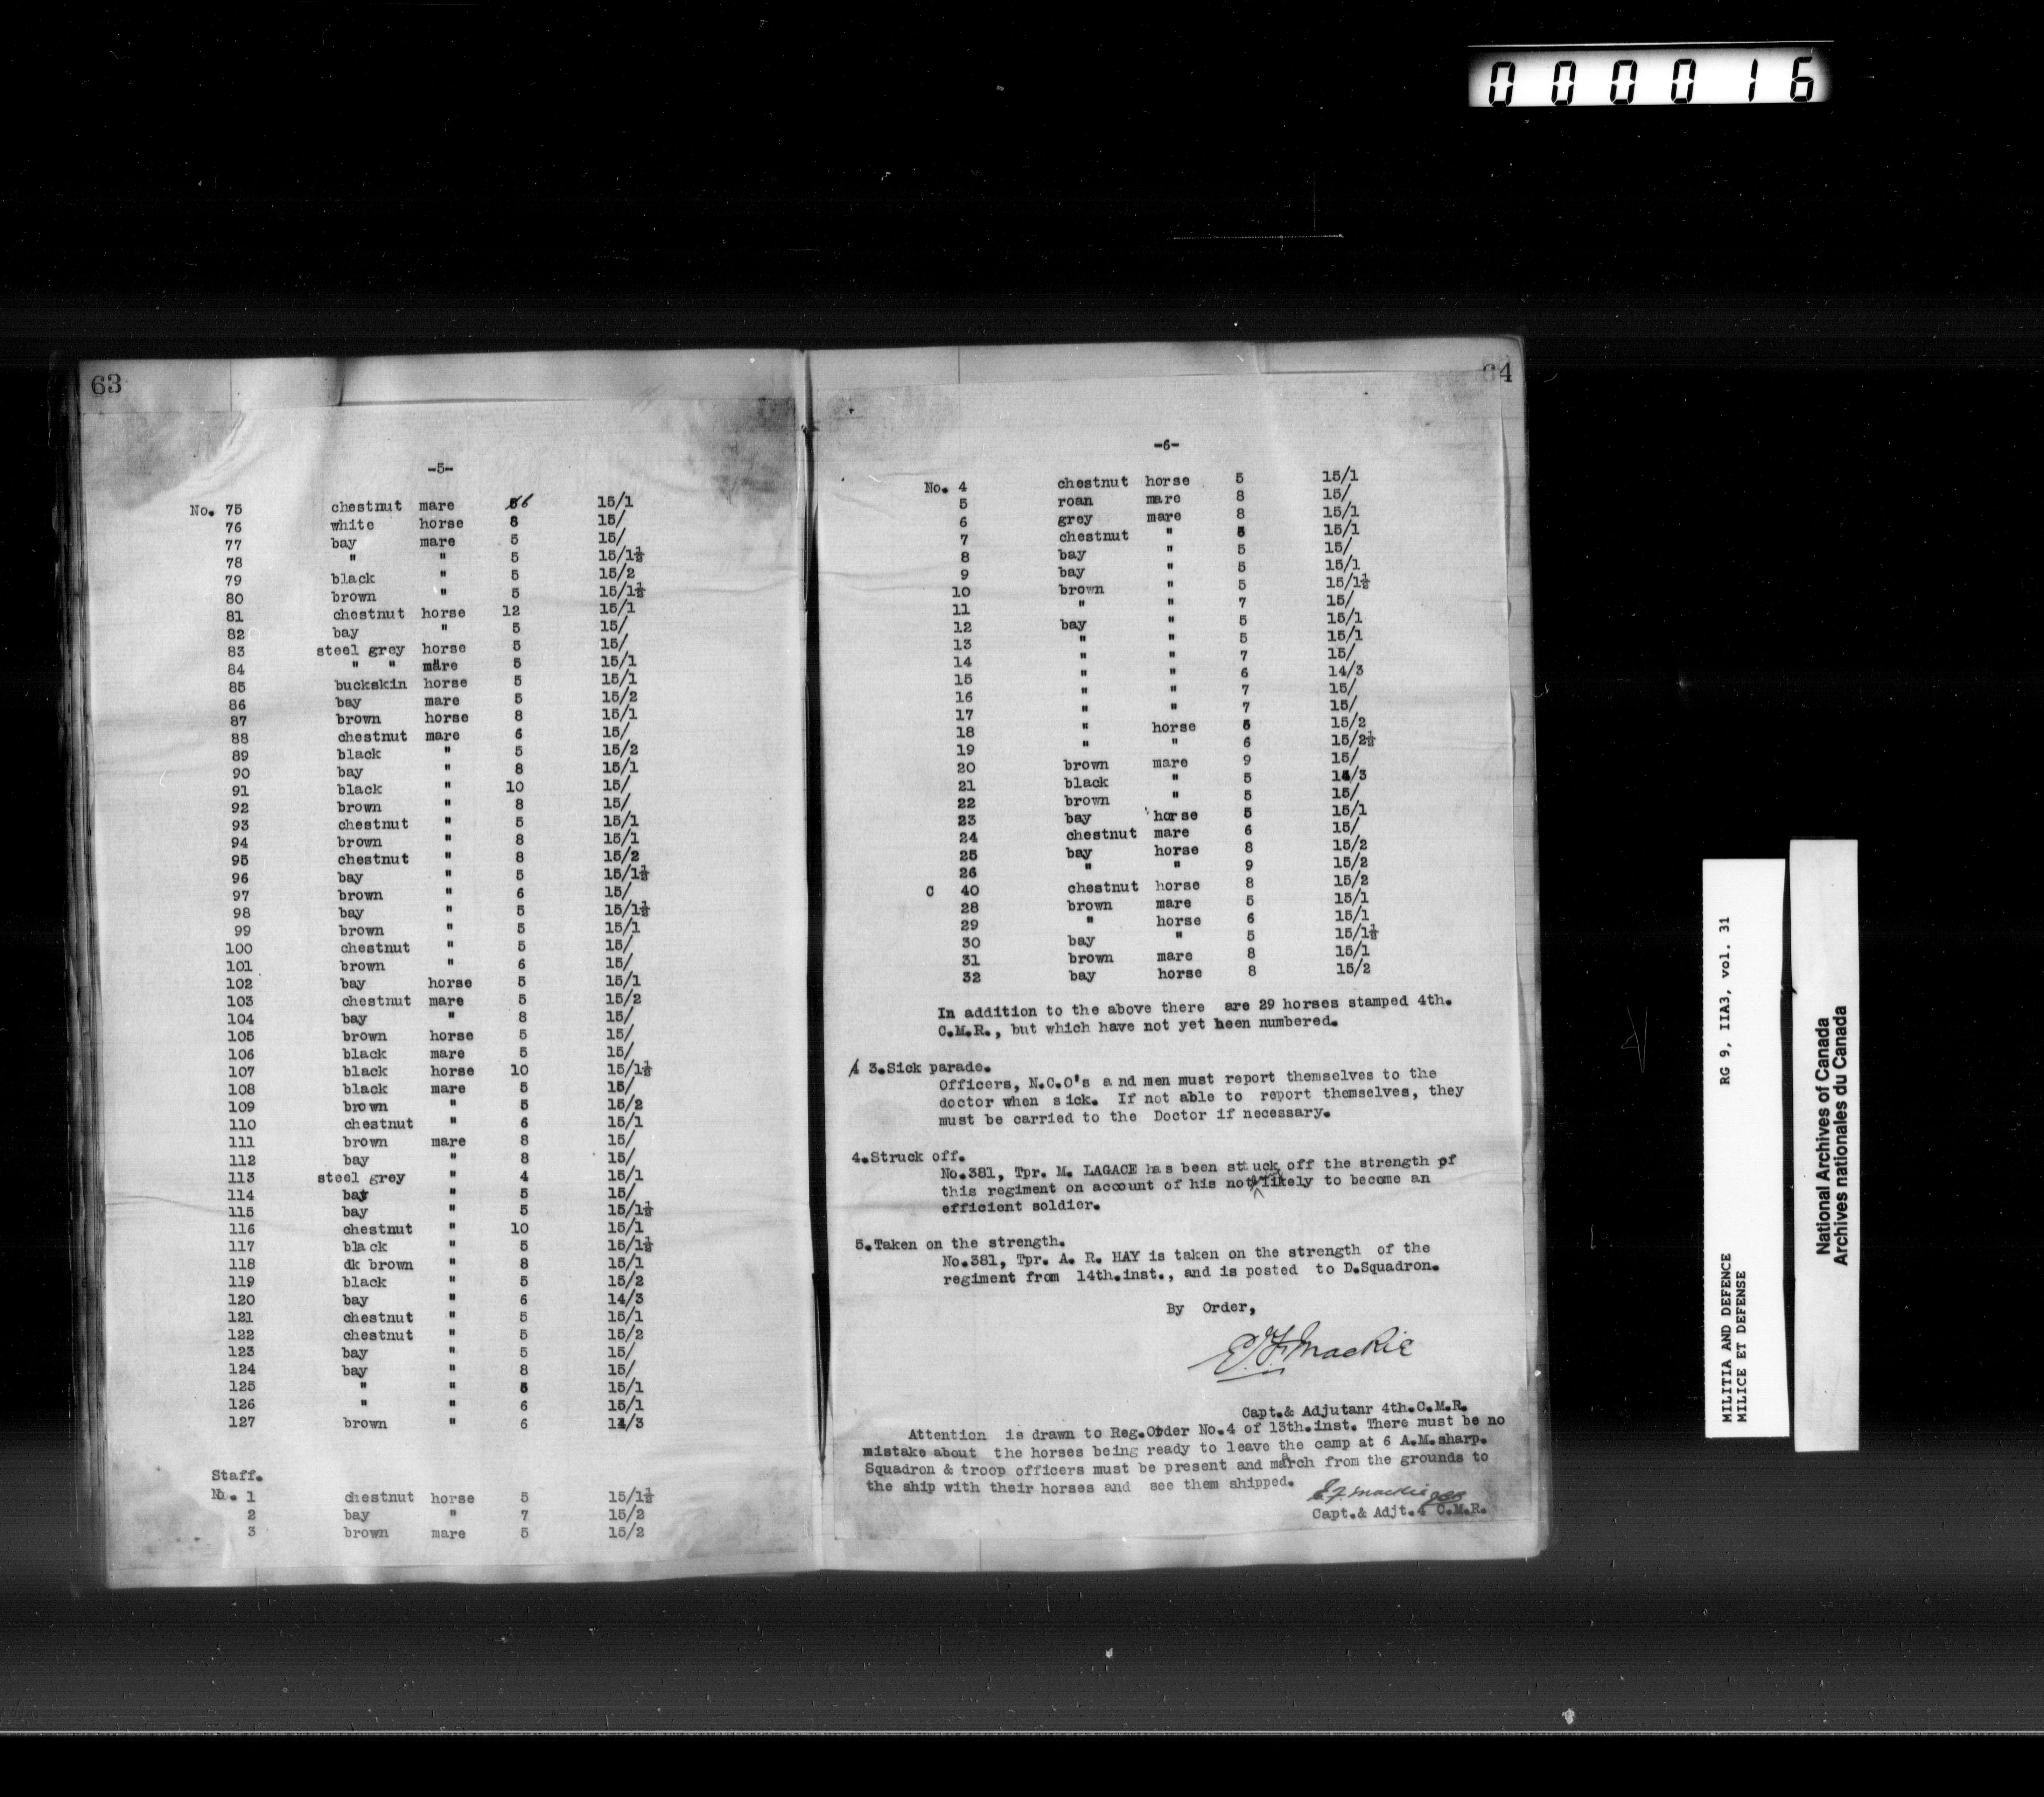 000016
63
-5-
No. 75 chestnut mare 6 15/1
76 white horse 8 15/
77 bay mare 5 15/
78 " " 5 15/1½
79 black " 5 15/2
80 brown " 5 15/1½
81 chestnut horse 12 15/1
82 bay " 5 15/
83 steel grey horse 5 15/
84 " " mare 5 15/1
85 buckskin horse 5 15/1
86 bay mare 5 15/2
87 brown horse 8 15/1
88 chestnut mare 6 15/
89 black " 5 15/2
90 bay " 8 15/1
91 black " 10 15/
92 brown " 8 15/
93 chestnut " 5 15/1
94 brown " 8 15/1
95 chestnut " 8 15/2
96 bay " 5 15/1½
97 brown " 6 15/
98 bay " 5 15/1½
99 brown " 5 15/1
100 chestnut " 5 15/
101 brown " 6 15/
102 bay horse 5 15/1
103 chestnut mare 5 15/2
104 bay " 8 15/
105 brown horse 5 15/
106 black mare 5 15/
107 black horse 10 15/1½
108 black mare 5 15/
109 brown " 5 15/2
110 chestnut " 6 15/1
111 brown mare 8 15/
112 bay " 8 15/
113 steel grey " 4 15/1
114 bay " 5 15/
115 bay " 5 15/1½
116 chestnut " 10 15/1
117 black " 5 15/1½
118 dk brown " 8 15/1
119 black " 5 15/2
120 bay " 6 14/3
121 chestnut " 5 15/1
122 chestnut " 5 15/2
123 bay " 5 15/
124 bay " 8 15/
125 " " 15/1
126 " " 6 15/1
127 brown " 6 14/3
Staff.
No. 1 chestnut horse 5 15/1½
2 bay " 7 15/2
3 brown mare 5 15/2
64
-6-
No. 4 chestnut horse 5 15/1
5 roan mare 8 15/
6 grey mare 8 15/1
7 chestnut " 15/1
8 bay " 5 15/
9 bay " 5 15/1
10 brown " 5 15/1½
11 " " 7 15/
12 bay " 5 15/1
13 " " 5 15/1
14 " " 7 15/
15 " " 6 14/3
16 " " 7 15/
17 " " 7 15/
18 " horse 15/2
19 " " 6 15/2½
20 brown mare 9 15/
21 black " 5 14/3
22 brown " 5 15/
23 bay horse 5 15/1
24 chestnut mare 6 15/
25 bay horse 8 15/2
26 " " 9 15/2
C 40 chestnut horse 8 15/2
28 brown mare 5 15/1
29 " horse 6 15/1
30 bay " 5 15/1½
31 brown mare 8 15/1
32 bay horse 8 15/2
In addition to the above there are 29 horses stamped 4th.
C.M.R., but which have not yet been numbered.
3.Sick parade.
Officers, N.C.O's and men must report themselves to the
doctor when sick. If not able to report themselves, they
must be carried to the Doctor if necessary.
4.Struck off.
No.381, Tpr. M. LAGACE has been stuck off the strength of
this regiment on account of his not likely to become an
efficient soldier.
5.Taken on the strength.
No.381, Tpr. A. R. HAY is taken on the strength of the
regiment from 14th.inst., and is posted to D.Squadron.
By Order,
E.F. Mackie
Capt.& Adjutanr 4th.C.M.R.
Attention is drawn to Reg.Order No.4 of 13th.inst. There must be no
mistake about the horses being ready to leave the camp at 6 A.M.sharp.
Squadron & troop officers must be present and march from the grounds to
the ship with their horses and see them shipped.
E.F. Mackie
Capt.& Adjt.4 C.M.R.
MILITIA AND DEFENCE RG 9, IIA3, vol. 31
MILICE ET DEFENSE
National Archives of Canada
Archives nationales du Canada